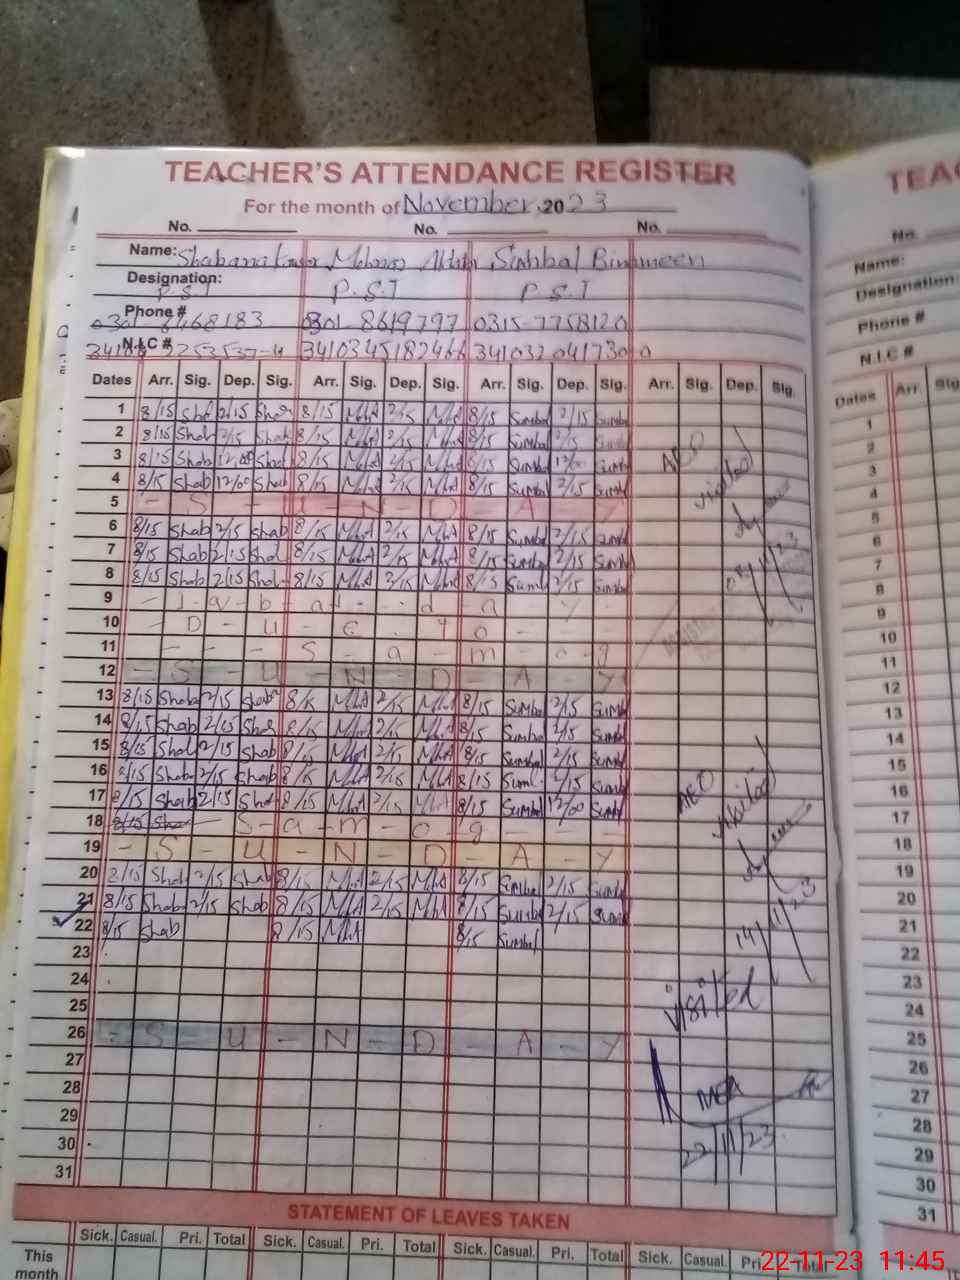 TEACHER'S ATTENDANCE REGISTER
For the month of November, 2023
No. No. No.
Name: Shabana Mehnaz Akhtar
Designation: P.S.T P.S.T P.S.T
Phone # 0301-8619797 0315-7758120
N.I.C # 3410345182466
Dates Arr. Sig. Dep. Sig. Arr. Sig. Dep. Sig. Arr. Sig. Dep. Sig. Arr. Sig. Dep. Sig.
1 8/15 Shab 2/15 Shab 8/15 MhA 2/15 MhA 8/15 Sumbal 2/15 Sumbal
2 8/15 Shab 2/15 Shab 8/15 MhA 2/15 MhA 8/15 Sumbal 2/15
3 8/15 Shab 12/00 Shab 8/15 MhA 2/15 MhA 8/15 Sumbal 12/00 Sumb
4 8/15 Shab 12/00 Shab 8/15 MhA 2/15 MhA 8/15 Sumbal 2/15 Sumb
5 - S - U - N - D - A - Y
6 8/15 Shab 2/15 Shab 8/15 MhA 2/15 MhA 8/15 Sumbal 2/15 Sumb
7 8/15 Shab 2/15 Shab 8/15 MhA 2/15 MhA 8/15 Sumbal 2/15 Sumb
8 8/15 Shab 2/15 Shab 8/15 MhA 2/15 MhA 8/15 Sumb 2/15 Sumb
9 - I - q - b - a - l - d - a - y -
10 - D - u - e - t - o - -
11 - - - S - - a - m - o - g
12 - S - U - N - D - A - Y
13 8/15 Shab 2/15 Shab 8/15 MhA 2/15 MhA 8/15 Sumbal 2/15 Sumbal
14 8/15 Shab 2/15 Shab 8/15 MhA 2/15 MhA 8/15 Sumbal 2/15 Sumb
15 8/15 Shab 2/15 Shab 8/15 MhA 2/15 MhA 8/15 Sumbal 2/15 Sumb
16 8/15 Shab 2/15 Shab 8/15 MhA 2/15 MhA 8/15 Sumb 2/15 Sumb
17 8/15 Shab 2/15 Shab 8/15 MhA 2/15 MhA 8/15 Sumbal 12/00 Sumb
18 8/15 Shab - S - a - m - o - g - -
19 - S - U - N - D - A - Y
20 8/15 Shab 2/15 Shab 8/15 MhA 2/15 MhA 8/15 Sumbal 2/15 Sumb
21 8/15 Shab 2/15 Shab 8/15 MhA 2/15 MhA 8/15 Sumbal 2/15 Sumb
22 8/15 Shab 8/15 MhA 8/15 Sumbal
23
24
25
26 - S - U - N - D - A - Y
27
28
29
30
31
AEO
visited
08/11/23
AEO
visited
14/11/23
visited
MEA
22/11/23
STATEMENT OF LEAVES TAKEN
Sick. Casual. Pri. Total Sick. Casual. Pri. Total Sick. Casual. Pri. Total Sick. Casual. Pri. Total
This month
TEAC
No.
Name:
Designation:
Phone #
N.I.C #
Dates Arr. Sig.
1
2
3
4
5
6
7
8
9
10
11
12
13
14
15
16
17
18
19
20
21
22
23
24
25
26
27
28
29
30
31
22-11-23 11:45